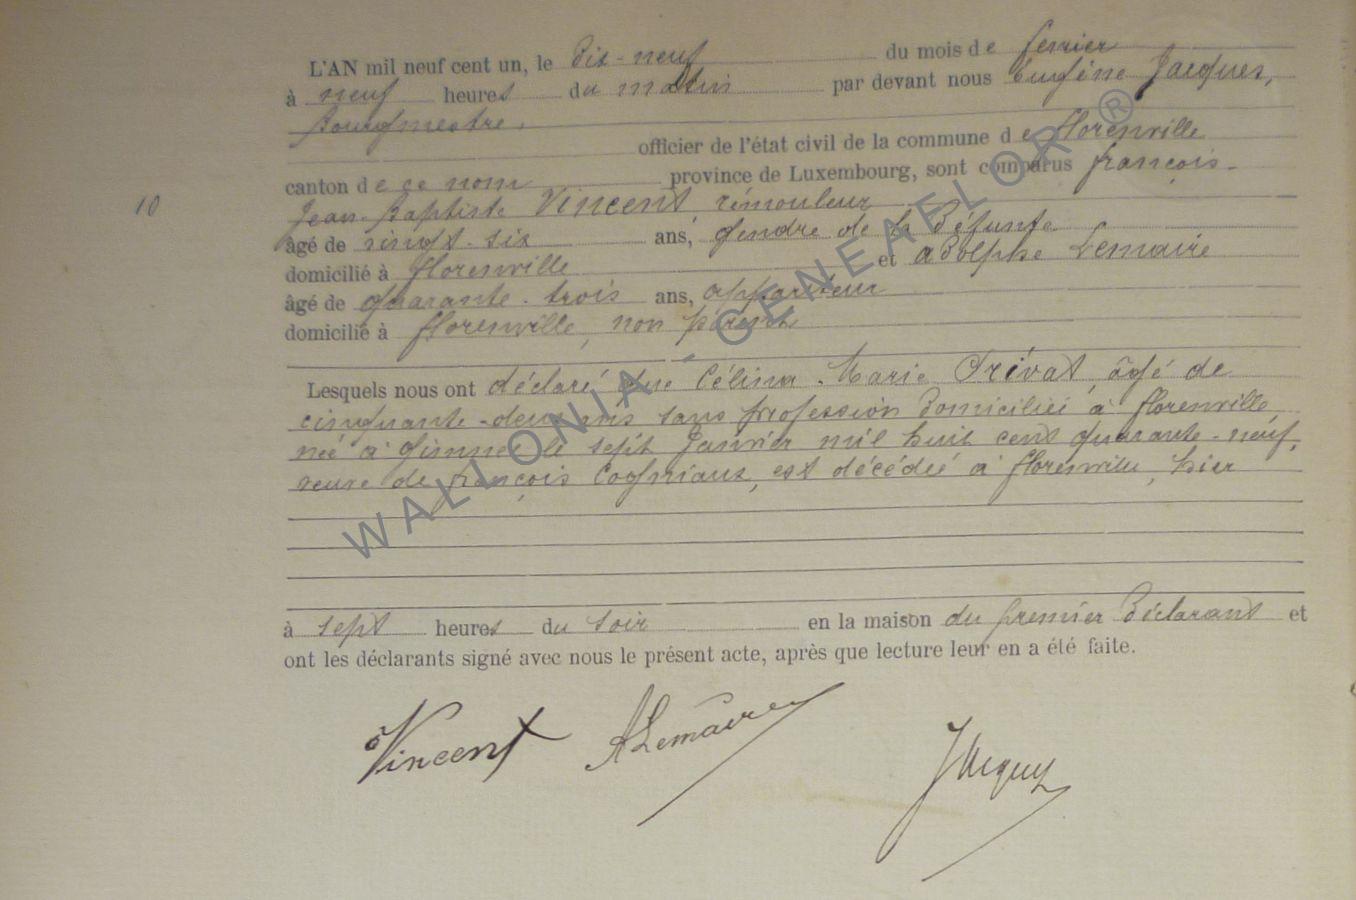 L'AN mil neuf cent un, le Dix-neuf du mois de fevrier
à neuf heures du matin par devant nous Eugène Jacques,
Bourgmestre,
officier de l'état civil de la commune de florenville
canton de ce nom province de Luxembourg, sont comparus françois-
10
Jean-Baptiste Vincent, rémouleur
âgé de vingt-six ans, gendre de la Défunte
domicilié à florenville et adolphe Lemaire
âgé de quarante-trois ans, appariteur
domicilié à florenville, non parent
Lesquels nous ont déclaré que Célina-Marie Privat, âgé de
cinquante-deux ans sans profession Domiciliée à florenville,
née à le sept Janvier mil huit cent quarante-neuf,
veuve de françois est décédée à florenville, hier
à sept heures du soir en la maison du premier Déclarant et
ont les déclarants signé avec nous le présent acte, après que lecture leur en a été faite.
Vincent ALemaire Jacques
WALLONIA - GENEAFLOR ®